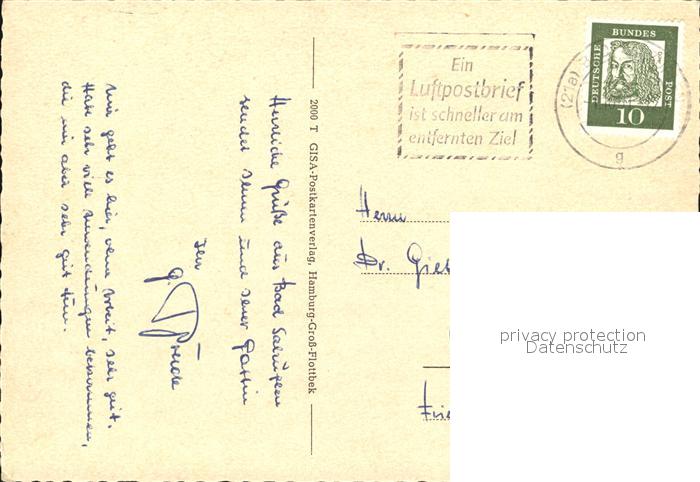 Ein
Luftpostbrief
ist schneller am
entfernten Ziel
DEUTSCHE BUNDES POST
10
(21a)
g
2000 T GISA-Postkartenverlag, Hamburg-Groß-Flottbek
Herrn
Dr.
privacy protection
Datenschutz
Herzliche Grüße aus Bad Salzuflen
sendet Ihnen und Ihrer Gattin
Ihr
G.
Mir geht es hier, ohne Arbeit, sehr gut.
Habe sehr viele Anwendungen bekommen,
die mir aber sehr gut tun.